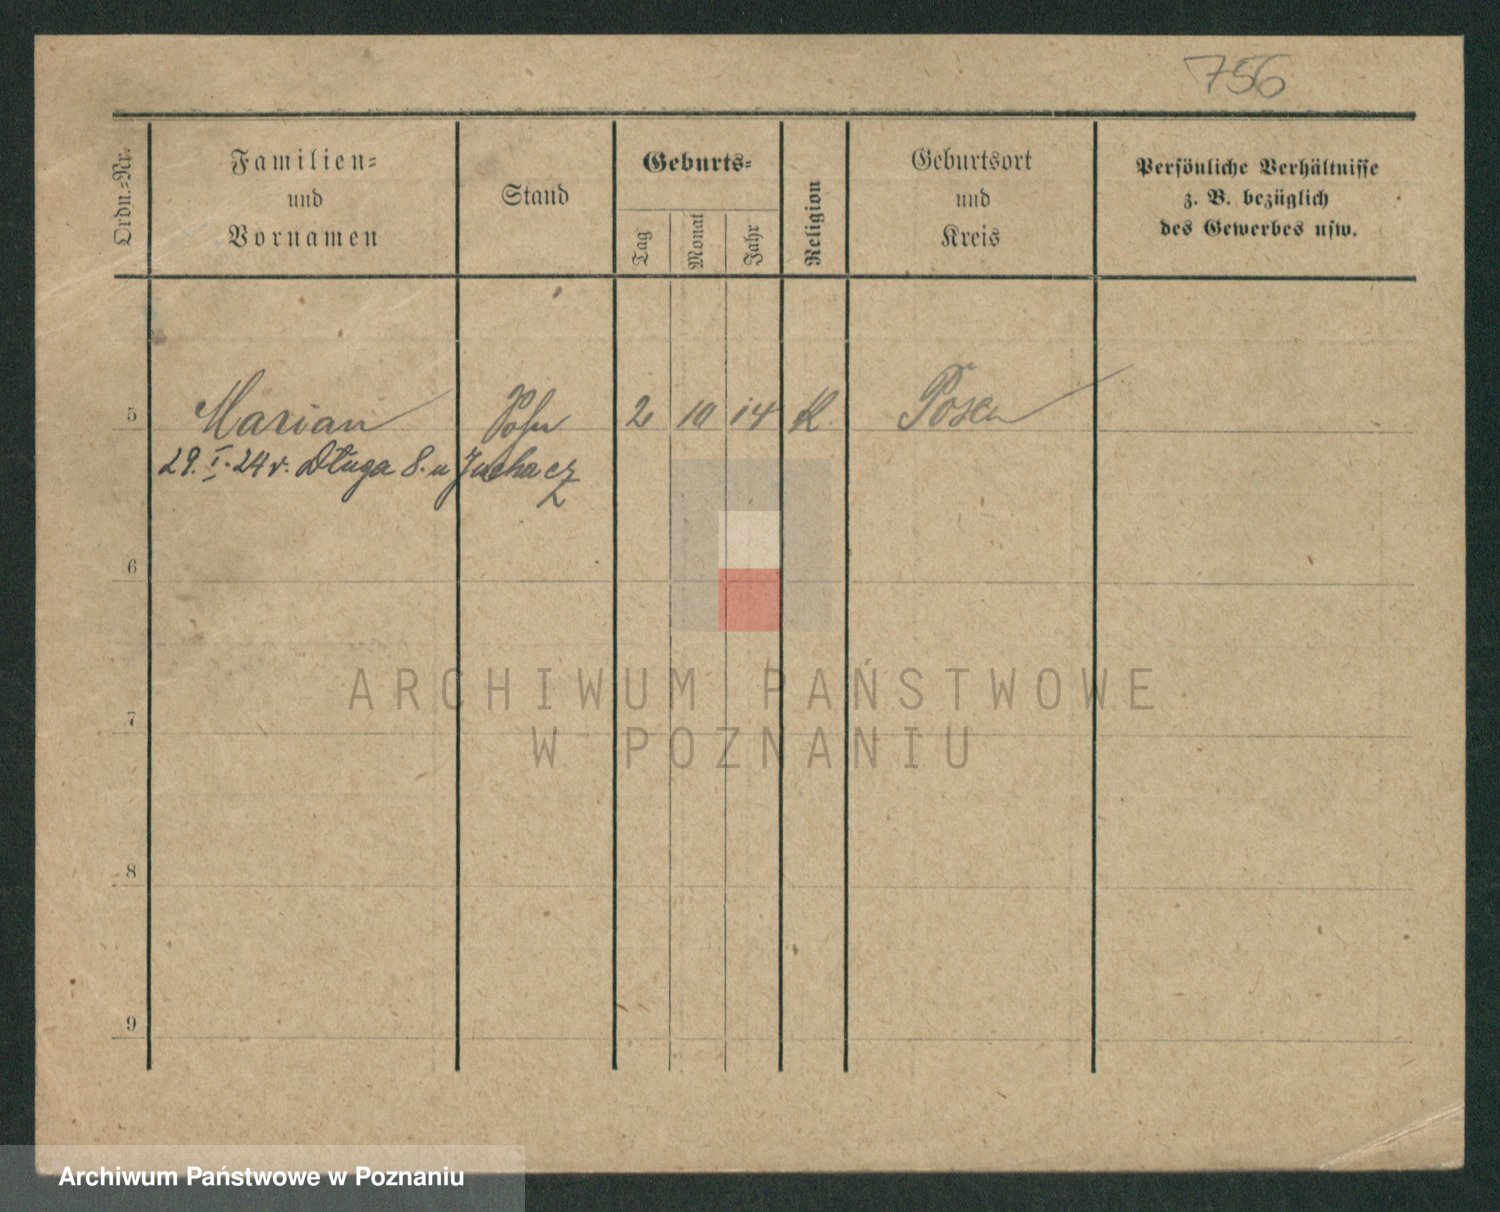 756
Ordn.-Nr.
Familien-
und
Vornamen
Stand
Geburts-
Tag
Monat
Jahr
Religion
Geburtsort
und
Kreis
Persönliche Verhältnisse
z. B. bezüglich
des Gewerbes usw.
5 Marian Sohn 2 10 14 K. Posen
29. I. 24 r. Długa 8. u Juchacz
6
7
8
9
ARCHIWUM PAŃSTWOWE
W POZNANIU
Archiwum Państwowe w Poznaniu